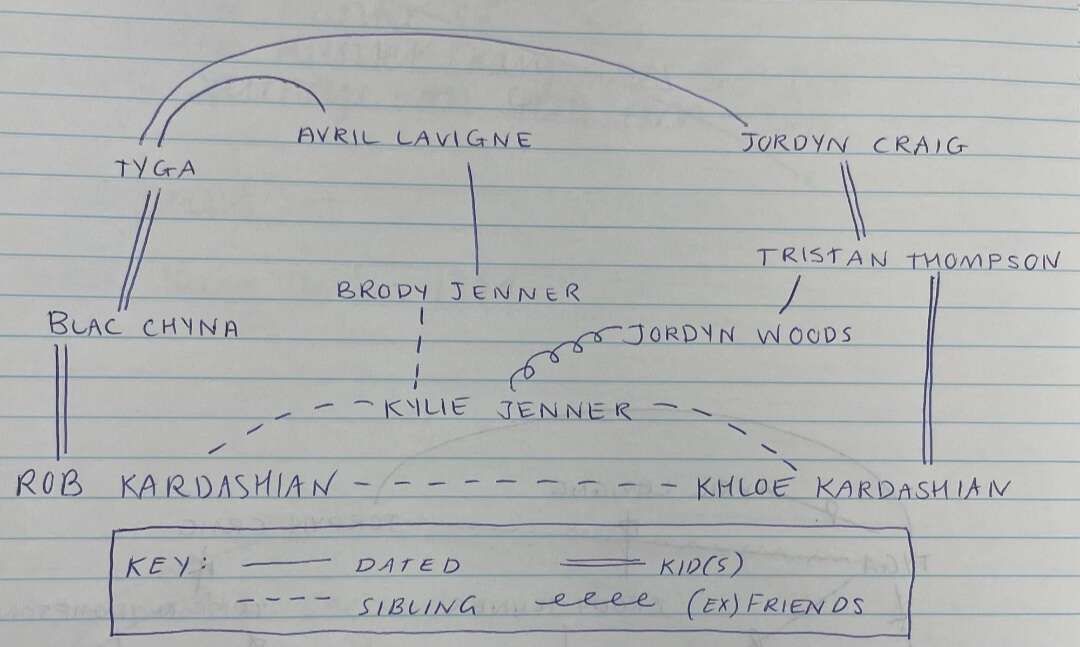 AVRIL LAVIGNE
JORDYN CRAIG
TYGA
TRISTAN THOMPSON
BRODY JENNER
BLAC CHYNA
JORDYN WOODS
KYLIE JENNER
ROB KARDASHIAN
KHLOE KARDASHIAN
KEY: DATED KID(S)
SIBLING (EX)FRIENDS